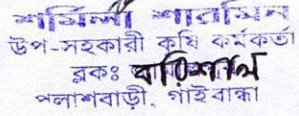 শর্মিলী শারমিন
উপ-সহকারী কৃষি কর্মকর্তা
ব্লকঃ
পলাশবাড়ী, গাইবান্ধা